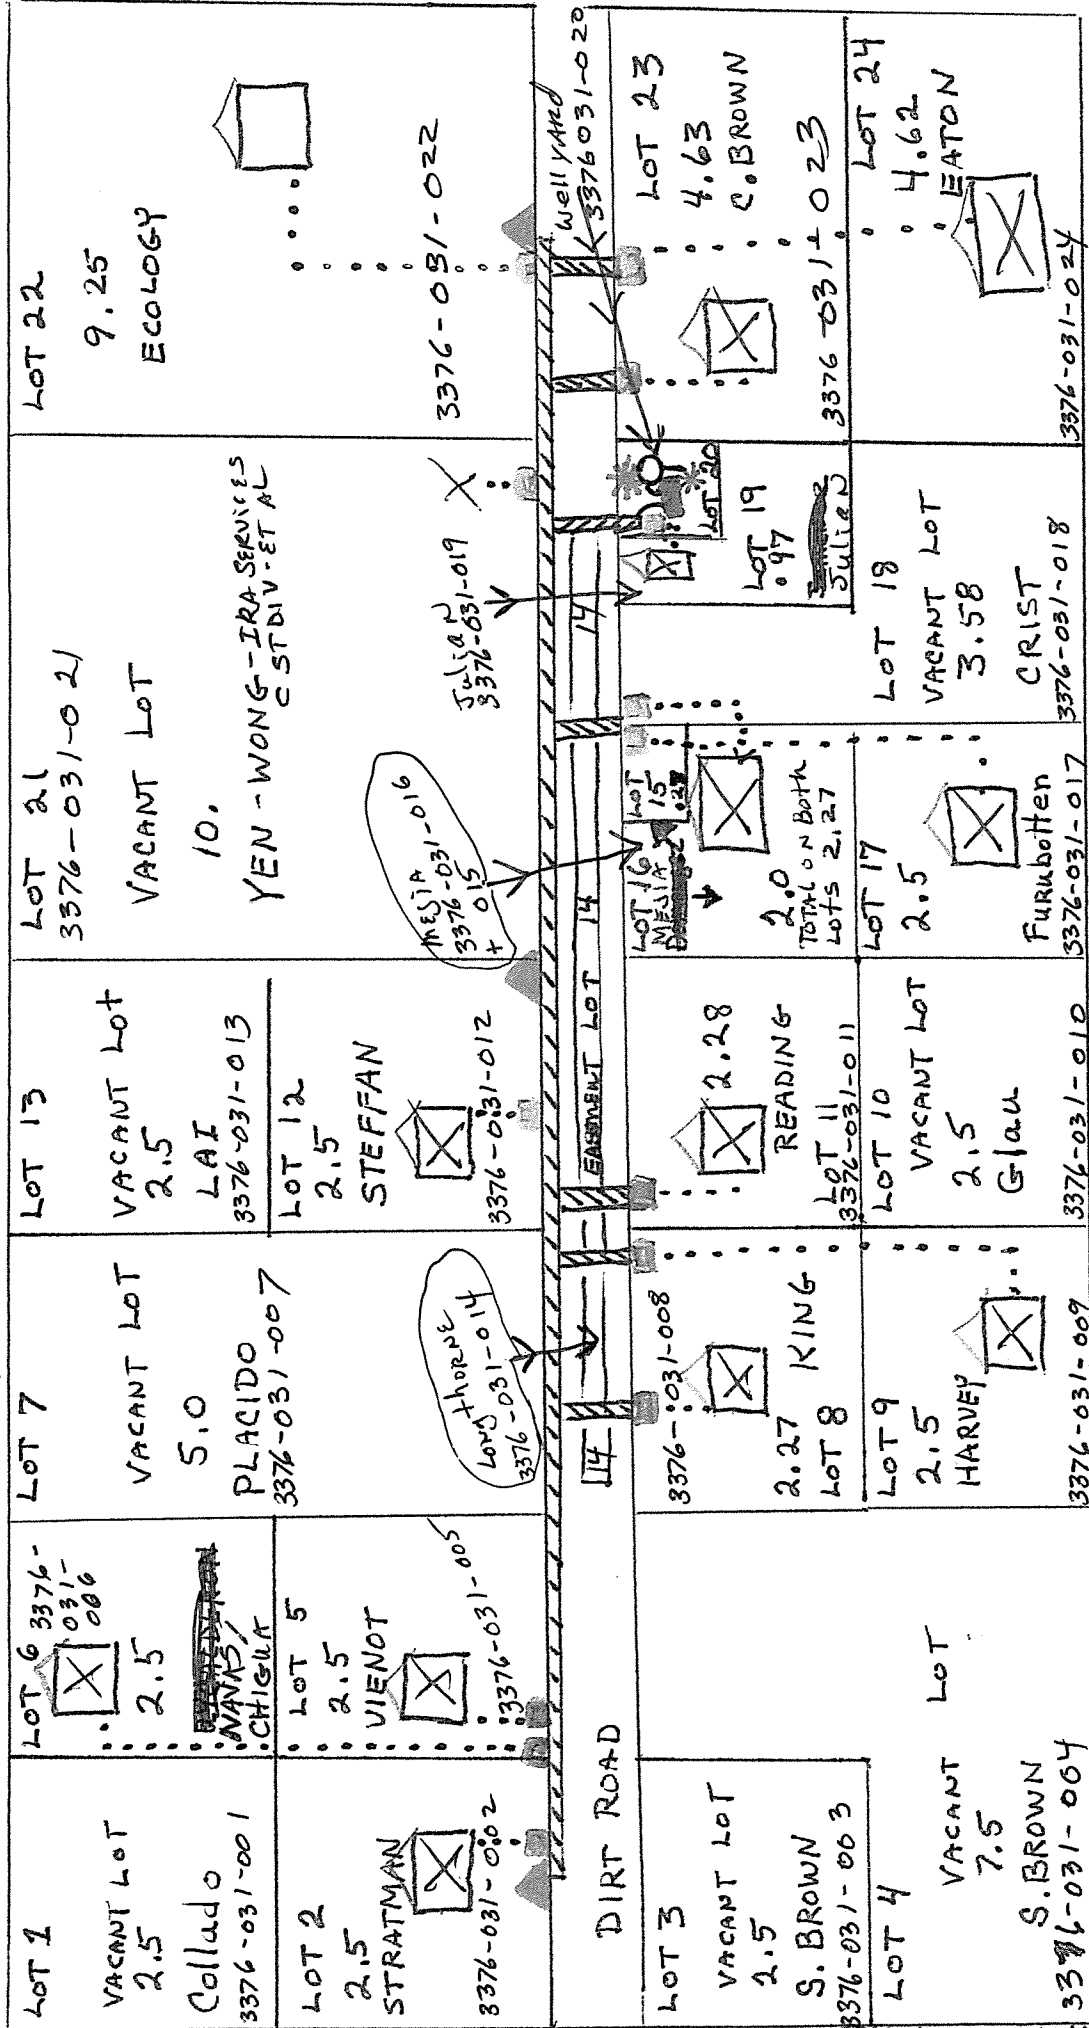 LOT 1
VACANT LOT
2.5
Collado
3376-031-001
LOT 2
2.5
STRATMAN
3376-031-002
LOT 6 3376-
031-
006
2.5
NAVAS/
CHIGUA
LOT 5
2.5
VIENOT
3376-031-005
3376-031-005
LOT 7
VACANT LOT
5.0
PLACIDO
3376-031-007
Long thorne
3376-031-014
LOT 13
VACANT Lot
2.5
LAI
3376-031-013
LOT 12
2.5
STEFFAN
3376-031-012
LOT 21
3376-031-021
VACANT LOT
10.
YEN-WONG-IRA SERVICES
CSTDIV-ET AL
MEJIA
3376-031-016
+ 015
Julian
3376-031-019
X
LOT 22
9.25
ECOLOGY
3376-031-022
DIRT ROAD
14
EASMENT LOT 14
14
Well YARD
3376031-020
LOT 3
VACANT LOT
2.5
S. BROWN
3376-031-003
LOT 4
VACANT LOT
7.5
S. BROWN
3376-031-004
3376-031-008
2.27 KING
LOT 8
LOT 9
2.5
HARVEY
3376-031-009
2.28
READING
LOT 11
3376-031-011
LOT 10
VACANT LOT
2.5
Glau
3376-031-010
LOT 16
MEJIA
LOT
15
.27
2.0
TOTAL ON BOTH
LOTS 2.27
LOT 17
2.5
Furubotten
3376-031-017
LOT 20
LOT 19
.97
Julian
LOT 18
VACANT LOT
3.58
CRIST
3376-031-018
LOT 23
4.63
C. BROWN
3376-031-023
LOT 24
4.62
EATON
3376-031-024